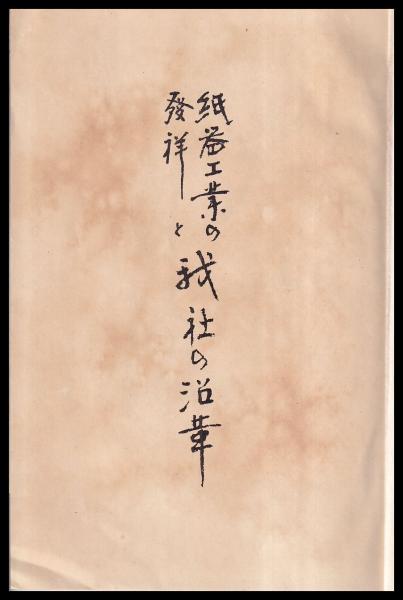 紙器工業の
發祥と
我社の沿革